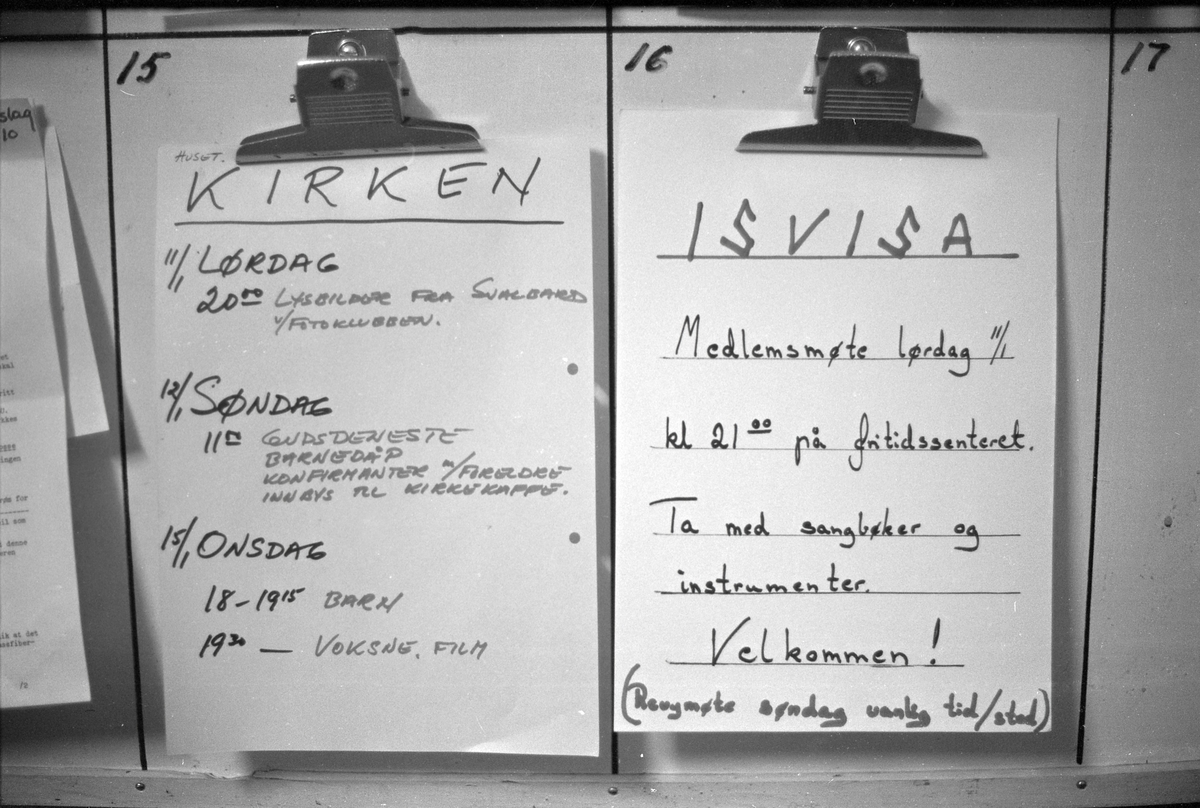 15
HUSET.
KIRKEN
11/1 LØRDAG
20⁰⁰ LYSBILDER FRA SVALBARD
V/FOTOKLUBBEN.
12/1 SØNDAG
11⁰⁰ GUDSDENESTE
BARNEDÅP
KONFIRMANTER M/FORELDRE
INNBYS TIL KIRKEKAFFE.
15/1 ONSDAG
18-19¹⁵ BARN
19³⁰ — VOKSNE. FILM
16
ISVISA
Medlemsmøte lørdag 11/1
kl 21⁰⁰ på fritidssenteret.
Ta med sangbøker og
instrumenter.
Velkommen!
(Revymøte søndag vanlig tid/sted)
17
slag
10
denne
/2